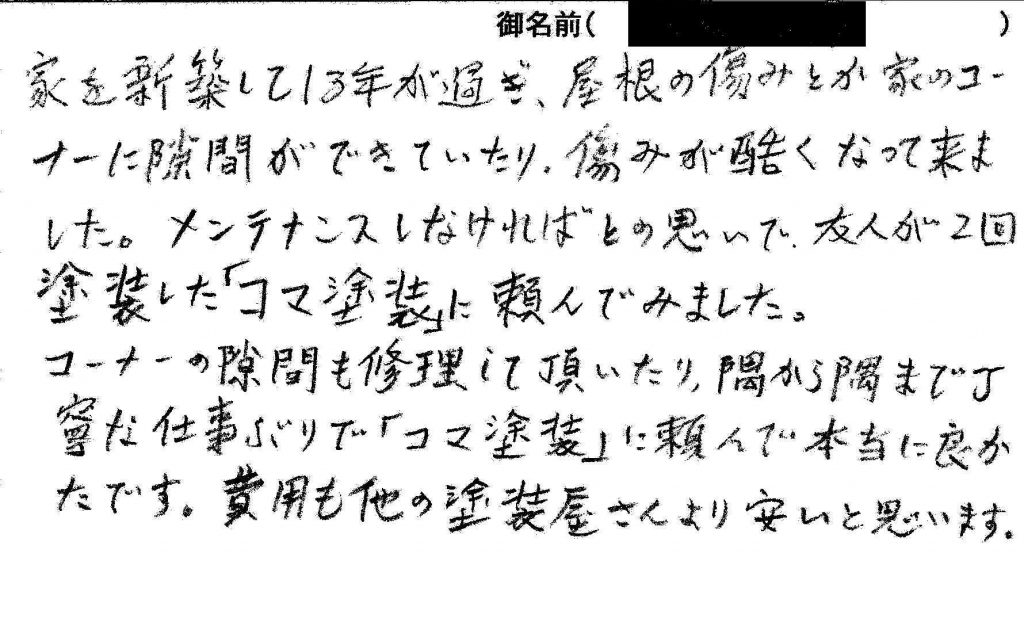 御名前( )
家を新築して13年が過ぎ、屋根の傷みとか家のコー
ナーに隙間ができていたり、傷みが酷くなって来ま
した。メンテナンスしなければとの思いで、友人が2回
塗装した「コマ塗装」に頼んでみました。
コーナーの隙間も修理して頂いたり、隅から隅まで丁
寧な仕事ぶりで「コマ塗装」に頼んで本当に良か
たです。費用も他の塗装屋さんより安いと思います。